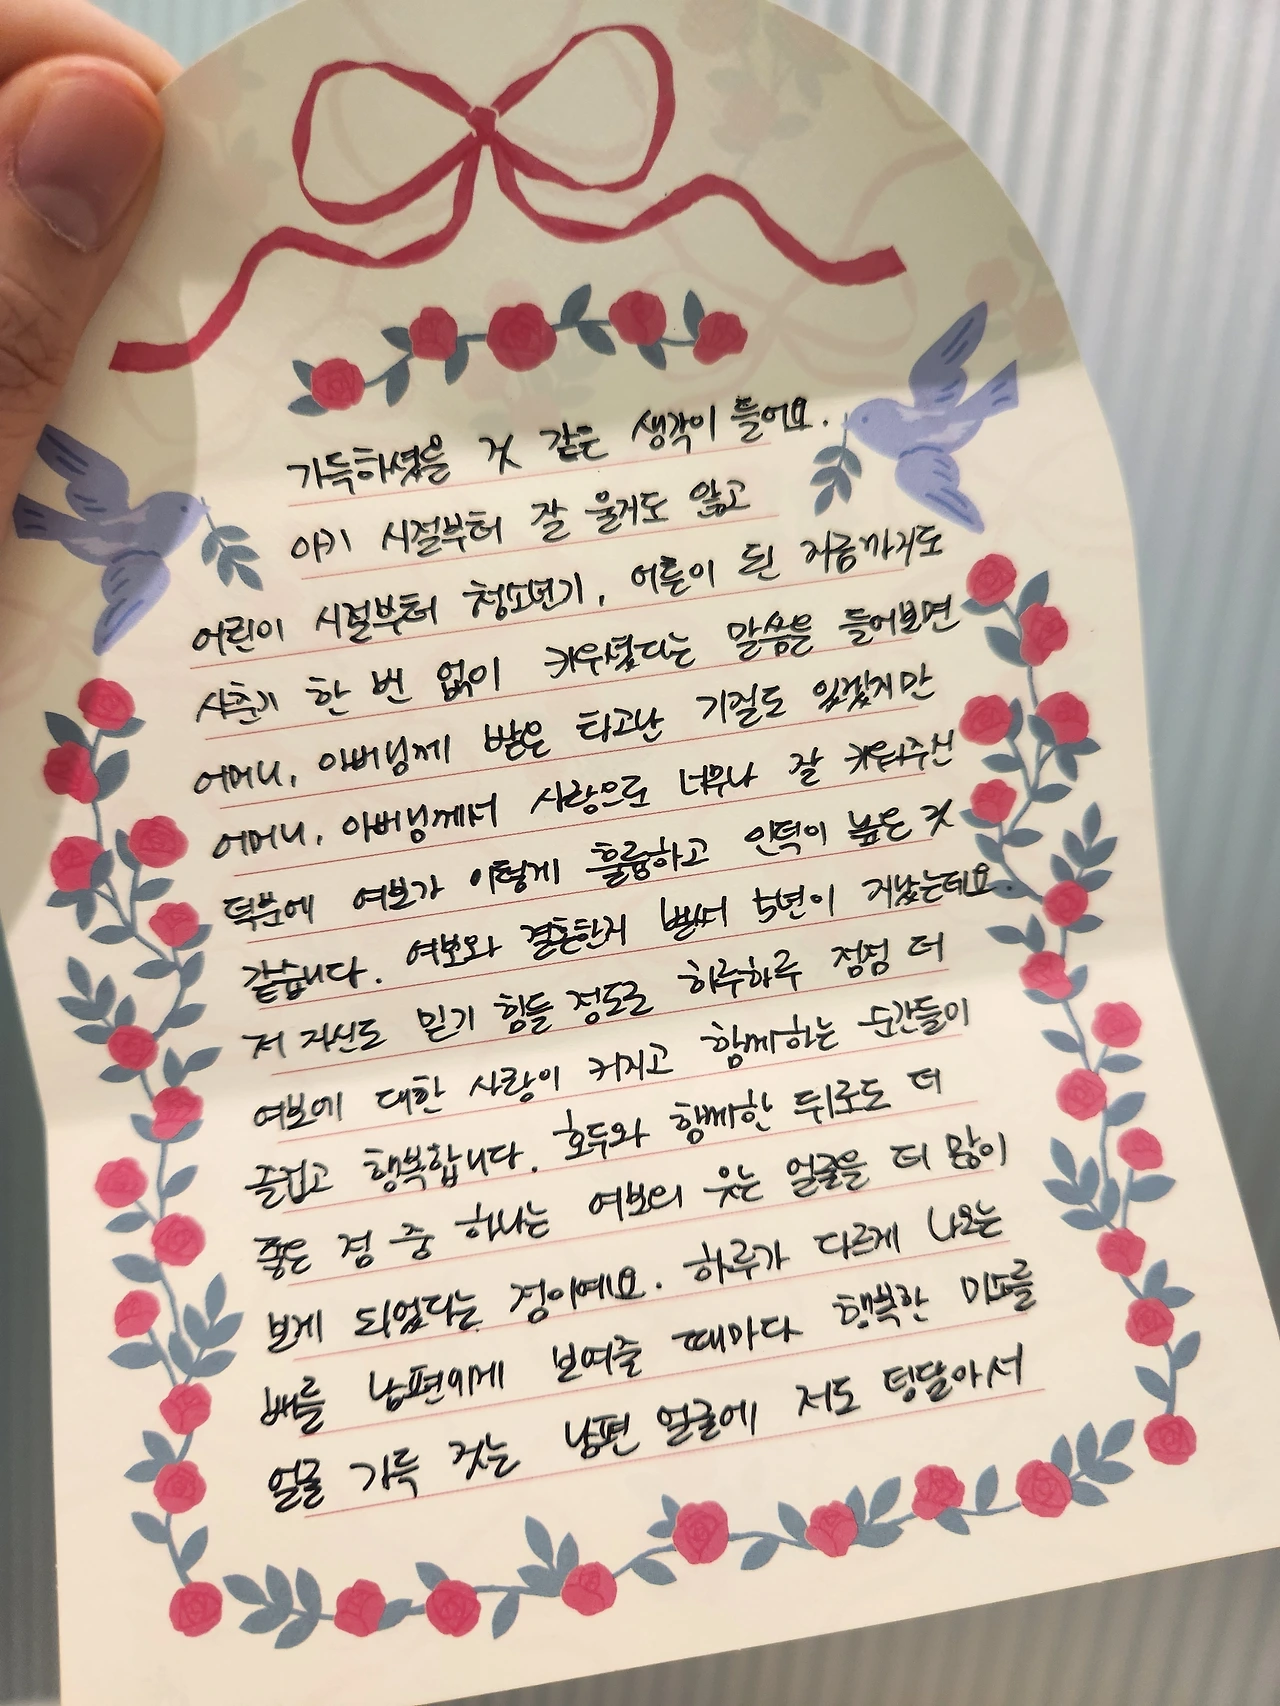 가득하셨을 것 같은 생각이 들어요.
아기 시절부터 잘 울거도 않고
어린이 시절부터 청소년기, 어른이 된 지금까지도
사춘기 한 번 없이 키우셨다는 말씀을 들어보면
어머니, 아버님께 받은 타고난 기질도 있겠지만
어머니, 아버님께서 사랑으로 너무나 잘 키워주신
덕분에 여보가 이렇게 훌륭하고 인덕이 높은 것
같습니다. 여보와 결혼한지 벌써 5년이 지났는데요.
저 자신도 믿기 힘들 정도로 하루하루 점점 더
여보에 대한 사랑이 커지고 함께하는 순간들이
즐겁고 행복합니다. 호두와 함께한 뒤로도 더
좋은 점 중 하나는 여보의 웃는 얼굴을 더 많이
보게 되었다는 점이에요. 하루가 다르게 나오는
배를 남편에게 보여줄 때마다 행복한 미소를
얼굴 가득 짓는 남편 얼굴에 저도 덩달아서